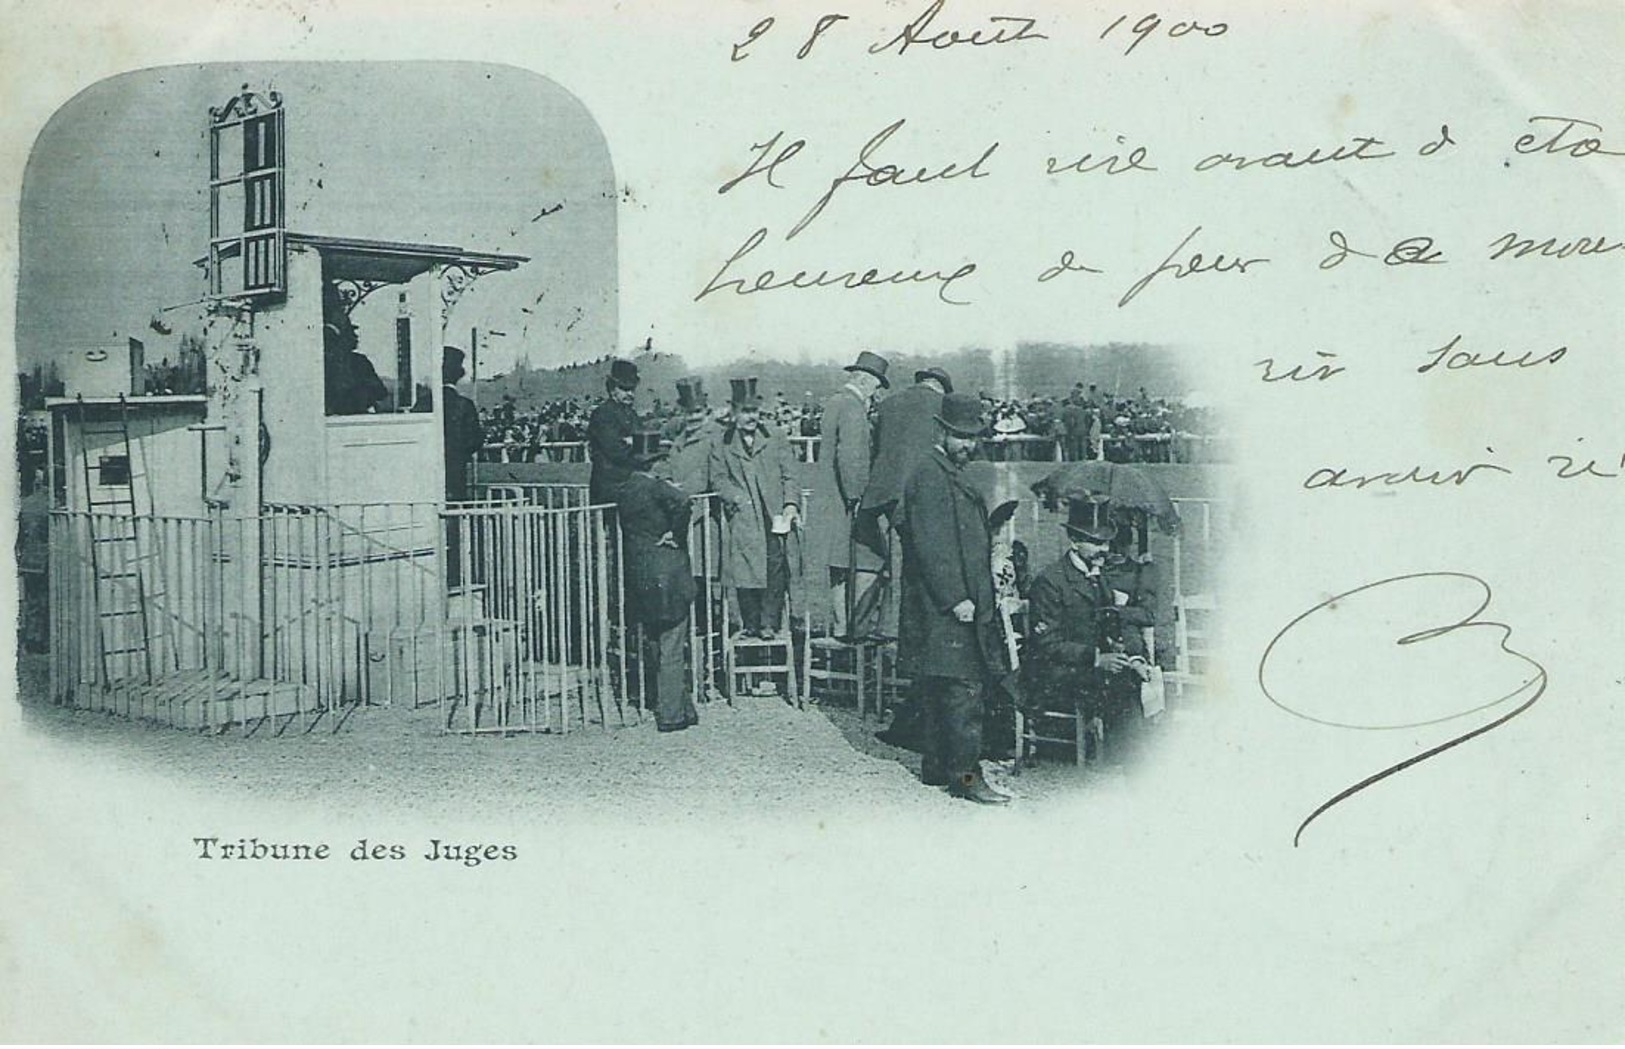 28 Août 1900
Il faut rire avant d etre
heureux de peur de mou
rir sans
avoir ri
I
II
III
Tribune des Juges